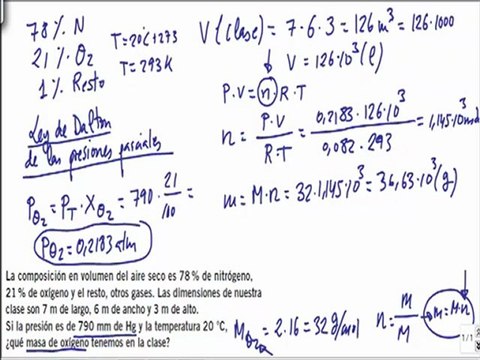 78% N
21% O₂
1% Resto
T=20C+273
T=293K
V(clase) = 7·6·3 = 126 m³ = 126·1000
V = 126·10³ (l)
P.V = n.R.T
n = P.V / R.T = 0,2183·126·10³ / 0,082·293 = 1,145·10³ mol
m = M·n = 32·1,145·10³ = 36,63·10³ (g)
Ley de Dalton
de las presiones parciales
P_O₂ = P_T · X_O₂ = 790 · 21/100 =
P_O₂ = 0,2183 atm
La composición en volumen del aire seco es 78 % de nitrógeno,
21 % de oxígeno y el resto, otros gases. Las dimensiones de nuestra
clase son 7 m de largo, 6 m de ancho y 3 m de alto.
Si la presión es de 790 mm de Hg y la temperatura 20 °C,
¿qué masa de oxígeno tenemos en la clase?
M_O₂ = 2·16 = 32 g/mol
n = m / M
m = M·n